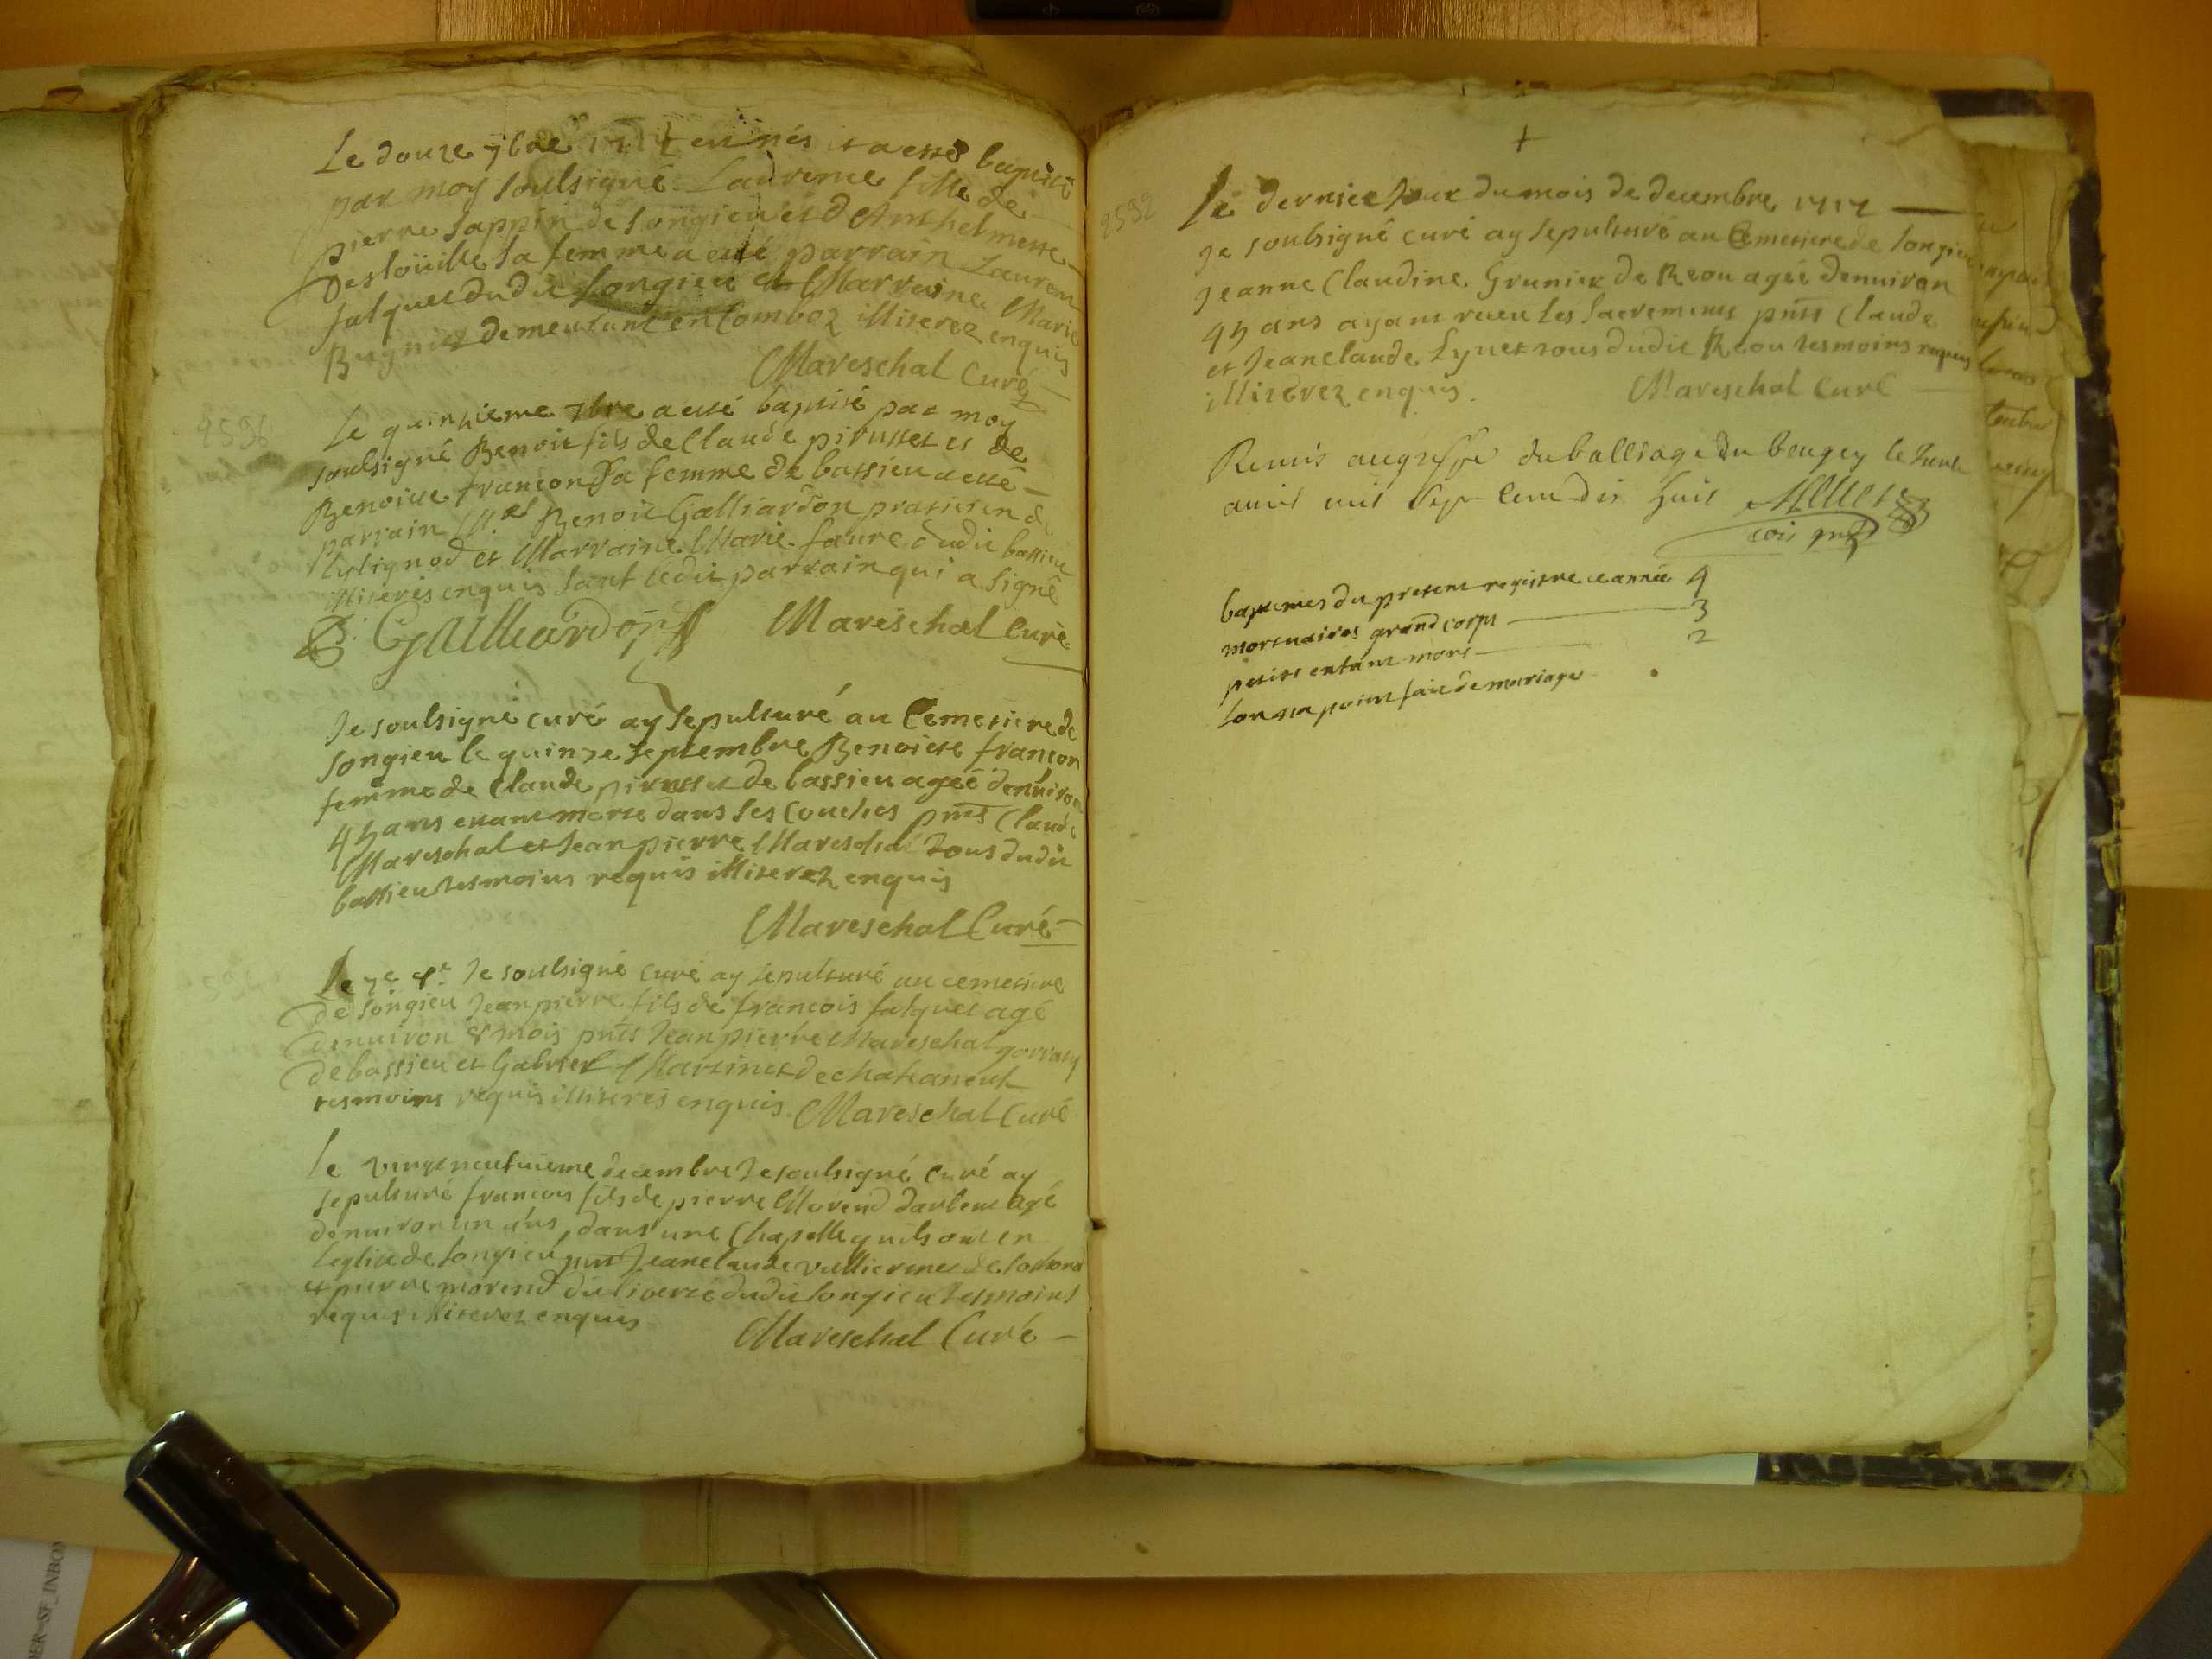 Le douze 7bre 1717 est nés et a esté baptisé
par moy soulsigné Laurence fille de
pierre sappin de songieu et d Anthelmette
Desloüille sa femme a esté parrain Laurent
falquet dudit songieu et Marraine Marie
Bugniet demeurant en Comboz illiterez enquis
Mareschal Curé
9596
Le quinzieme 7bre a esté baptisé par moy
soulsigné Benoit fils de Claude pirusset et de
Benoite françon sa femme de bassieu a esté
parrain Mre Benoit Galliardon praticien de
Lutignod et Marraine Marie faure dudit bassieu
illiterés enquis sauf ledit parrain qui a signé
B. Galliardon Mareschal Curé
Je soulsigné curé ay sepulturé au Cemetiere de
songieu le quinze septembre Benoiste françon
femme de Claude pirusset de bassieu agée denuiron
45 ans estant morte dans ses couches pnts Claude
Mareschal et Jean pierre Mareschal tous dudit
bassieu tesmoins requis illiterez enquis
Mareschal Curé
Le 7e 8e Je soulsigné curé ay sepulturé au cemetiere
de songieu Jean pierre fils de francois falquet agé
denuiron 8 mois pnts Jean pierre Mareschal
de bassieu et Gabriel Martinet de chateaneuf
tesmoins requis illiterés enquis Mareschal Curé
le vingtneufuieme decembre Je soulsigné curé ay
sepulturé francois fils de pierre Morend agé
denuiron un ans, dans une Chapelle quils ont en
leglise de songieu pnts Jeanclaude vullierme de
et pierre morend dudit songieu tesmoins
requis illiterez enquis
Mareschal Curé
+
9592
Le dernier Jour du mois de decembre 1717
Je soulsigné curé ay sepulturé au Cemetiere de songieu
Jeanne Claudine Grunier de Reou agée denuiron
45 ans ayant receu les sacrements pnts Claude
et Jeanclaude Lynet tous dudit Reou tesmoins requis
illiterez enquis. Mareschal Curé
Remis au greffe du balliage du beugey le
auril mil sept cent dix huit
baptemes du present registre et année 4
mortuaires grand corps 3
petits enfant mort 2
lon na point fait de mariages